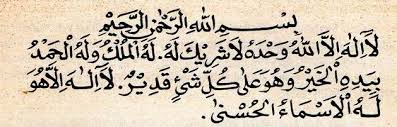 بِسْمِ اللهِ الرَّحْمٰنِ الرَّحِيْمِ
لَا اِلٰهَ اِلَّا اللهُ وَحْدَهُ لَا شَرِيْكَ لَهُ. لَهُ الْمُلْكُ وَلَهُ الْحَمْدُ
بِيَدِهِ الْخَيْرُ وَهُوَ عَلٰى كُلِّ شَئٍْ قَدِيْرٌ. لَا اِلٰهَ اِلَّا هُوَ
لَهُ الْاَسْمَاءُ الْحُسْنٰى.